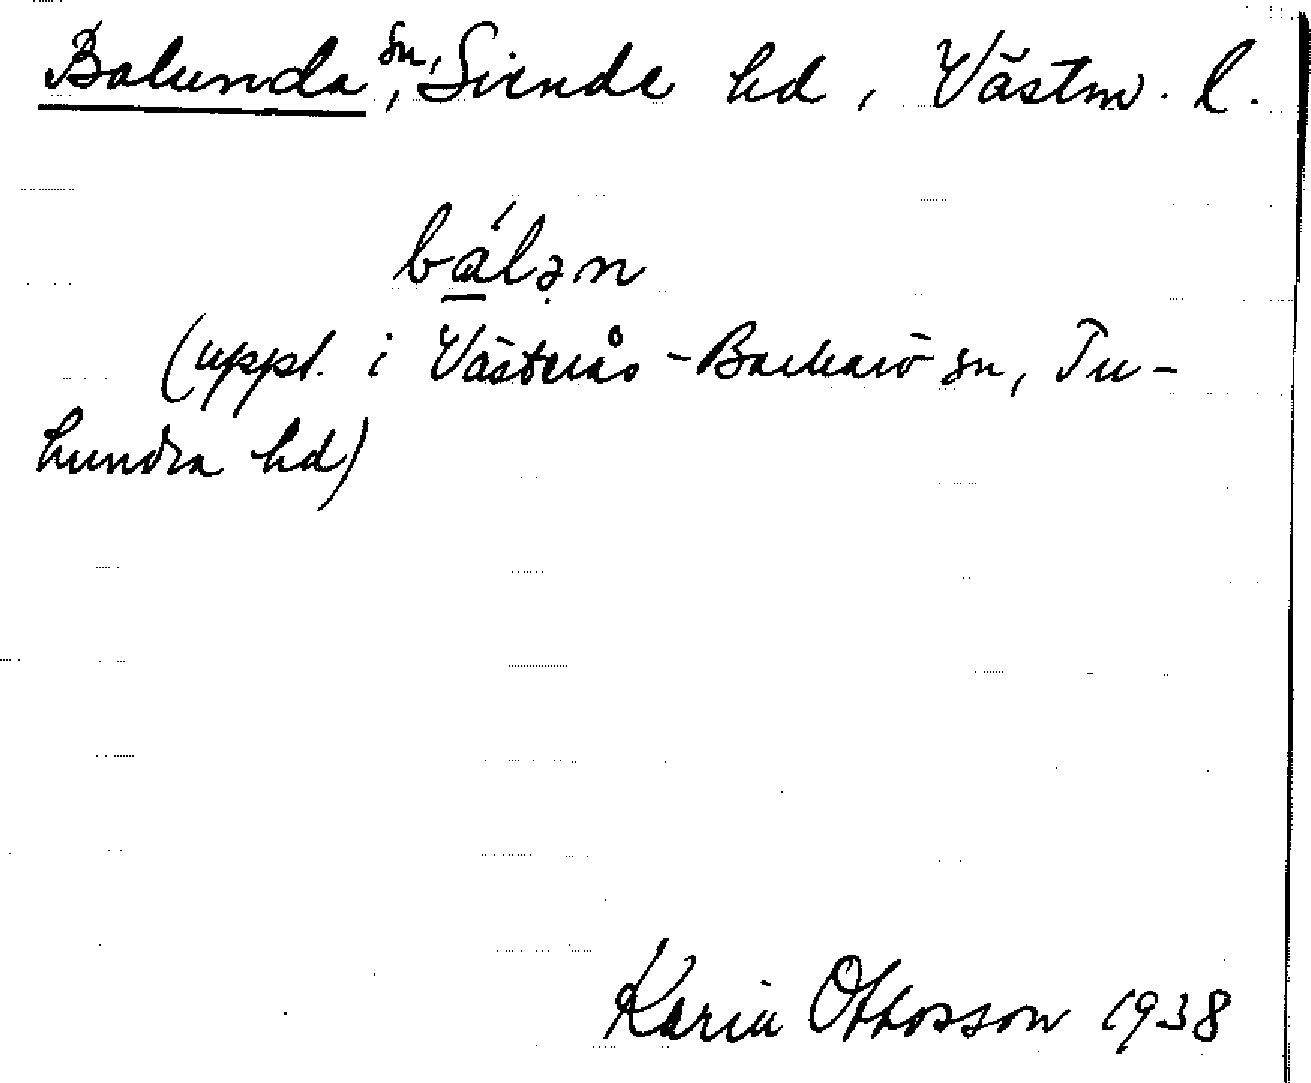 Balunda sn, Siende hd, Västm. l.
bálən
(uppt. i Västerås-Barkarö sn, Tu-
hundra hd)
Karin Ottosson 1938